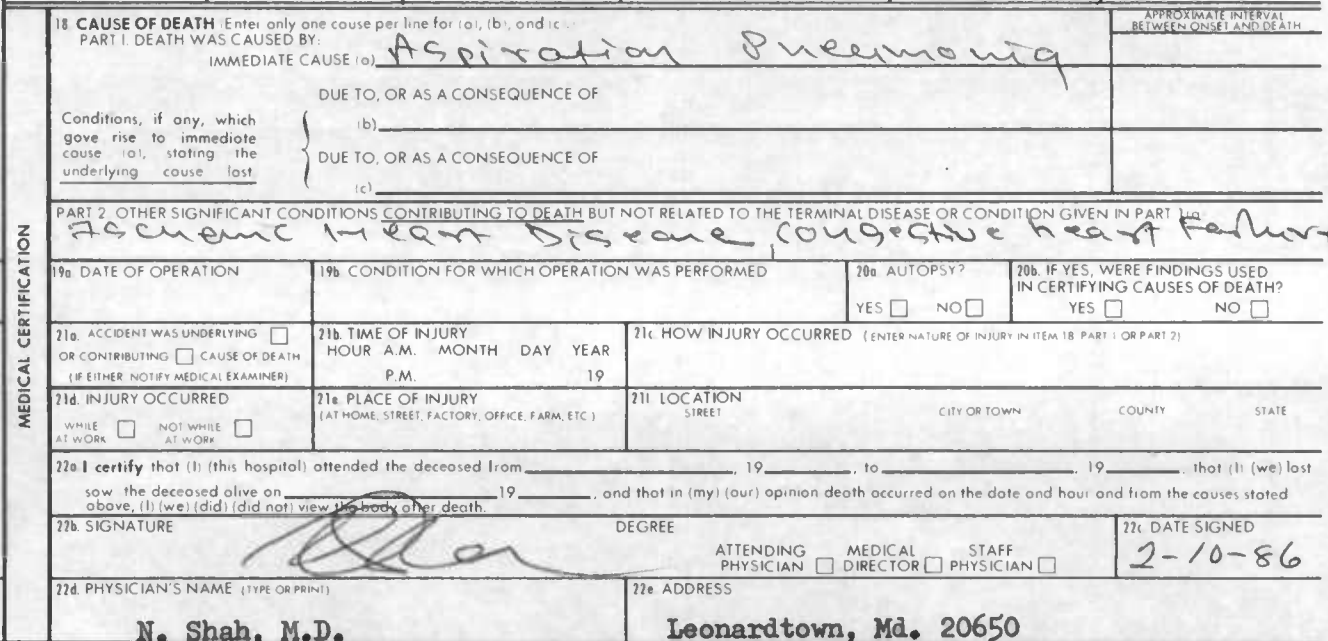 18. CAUSE OF DEATH (Enter only one cause per line for (a), (b), and (c).
APPROXIMATE INTERVAL
BETWEEN ONSET AND DEATH
PART I. DEATH WAS CAUSED BY:
IMMEDIATE CAUSE (a) Aspiration Pneumonia
DUE TO, OR AS A CONSEQUENCE OF
(b)
Conditions, if any, which
gave rise to immediate
cause (a), stating the
underlying cause last
DUE TO, OR AS A CONSEQUENCE OF
(c)
PART 2 OTHER SIGNIFICANT CONDITIONS CONTRIBUTING TO DEATH BUT NOT RELATED TO THE TERMINAL DISEASE OR CONDITION GIVEN IN PART 1(a)
Ischemic Heart Disease, Congestive heart Failure
MEDICAL CERTIFICATION
19a DATE OF OPERATION
19b CONDITION FOR WHICH OPERATION WAS PERFORMED
20a AUTOPSY?
YES NO
20b. IF YES, WERE FINDINGS USED
IN CERTIFYING CAUSES OF DEATH?
YES NO
21a. ACCIDENT WAS UNDERLYING
OR CONTRIBUTING CAUSE OF DEATH
(IF EITHER NOTIFY MEDICAL EXAMINER)
21b. TIME OF INJURY
HOUR A.M. MONTH DAY YEAR
P.M. 19
21c. HOW INJURY OCCURRED (ENTER NATURE OF INJURY IN ITEM 18 PART 1 OR PART 2)
21d. INJURY OCCURRED
WHILE AT WORK NOT WHILE AT WORK
21e PLACE OF INJURY
(AT HOME, STREET, FACTORY, OFFICE, FARM, ETC)
21f LOCATION
STREET CITY OR TOWN COUNTY STATE
22a I certify that (I) (this hospital) attended the deceased from , 19 , to , 19 , that (I) (we) last
saw the deceased alive on 19 , and that in (my) (our) opinion death occurred on the date and hour and from the causes stated
above, (I) (we) (did) (did not) view the body after death.
22b. SIGNATURE
DEGREE
ATTENDING PHYSICIAN MEDICAL DIRECTOR STAFF PHYSICIAN
22c DATE SIGNED
2-10-86
22d. PHYSICIAN'S NAME (TYPE OR PRINT)
N. Shah, M.D.
22e ADDRESS
Leonardtown, Md. 20650